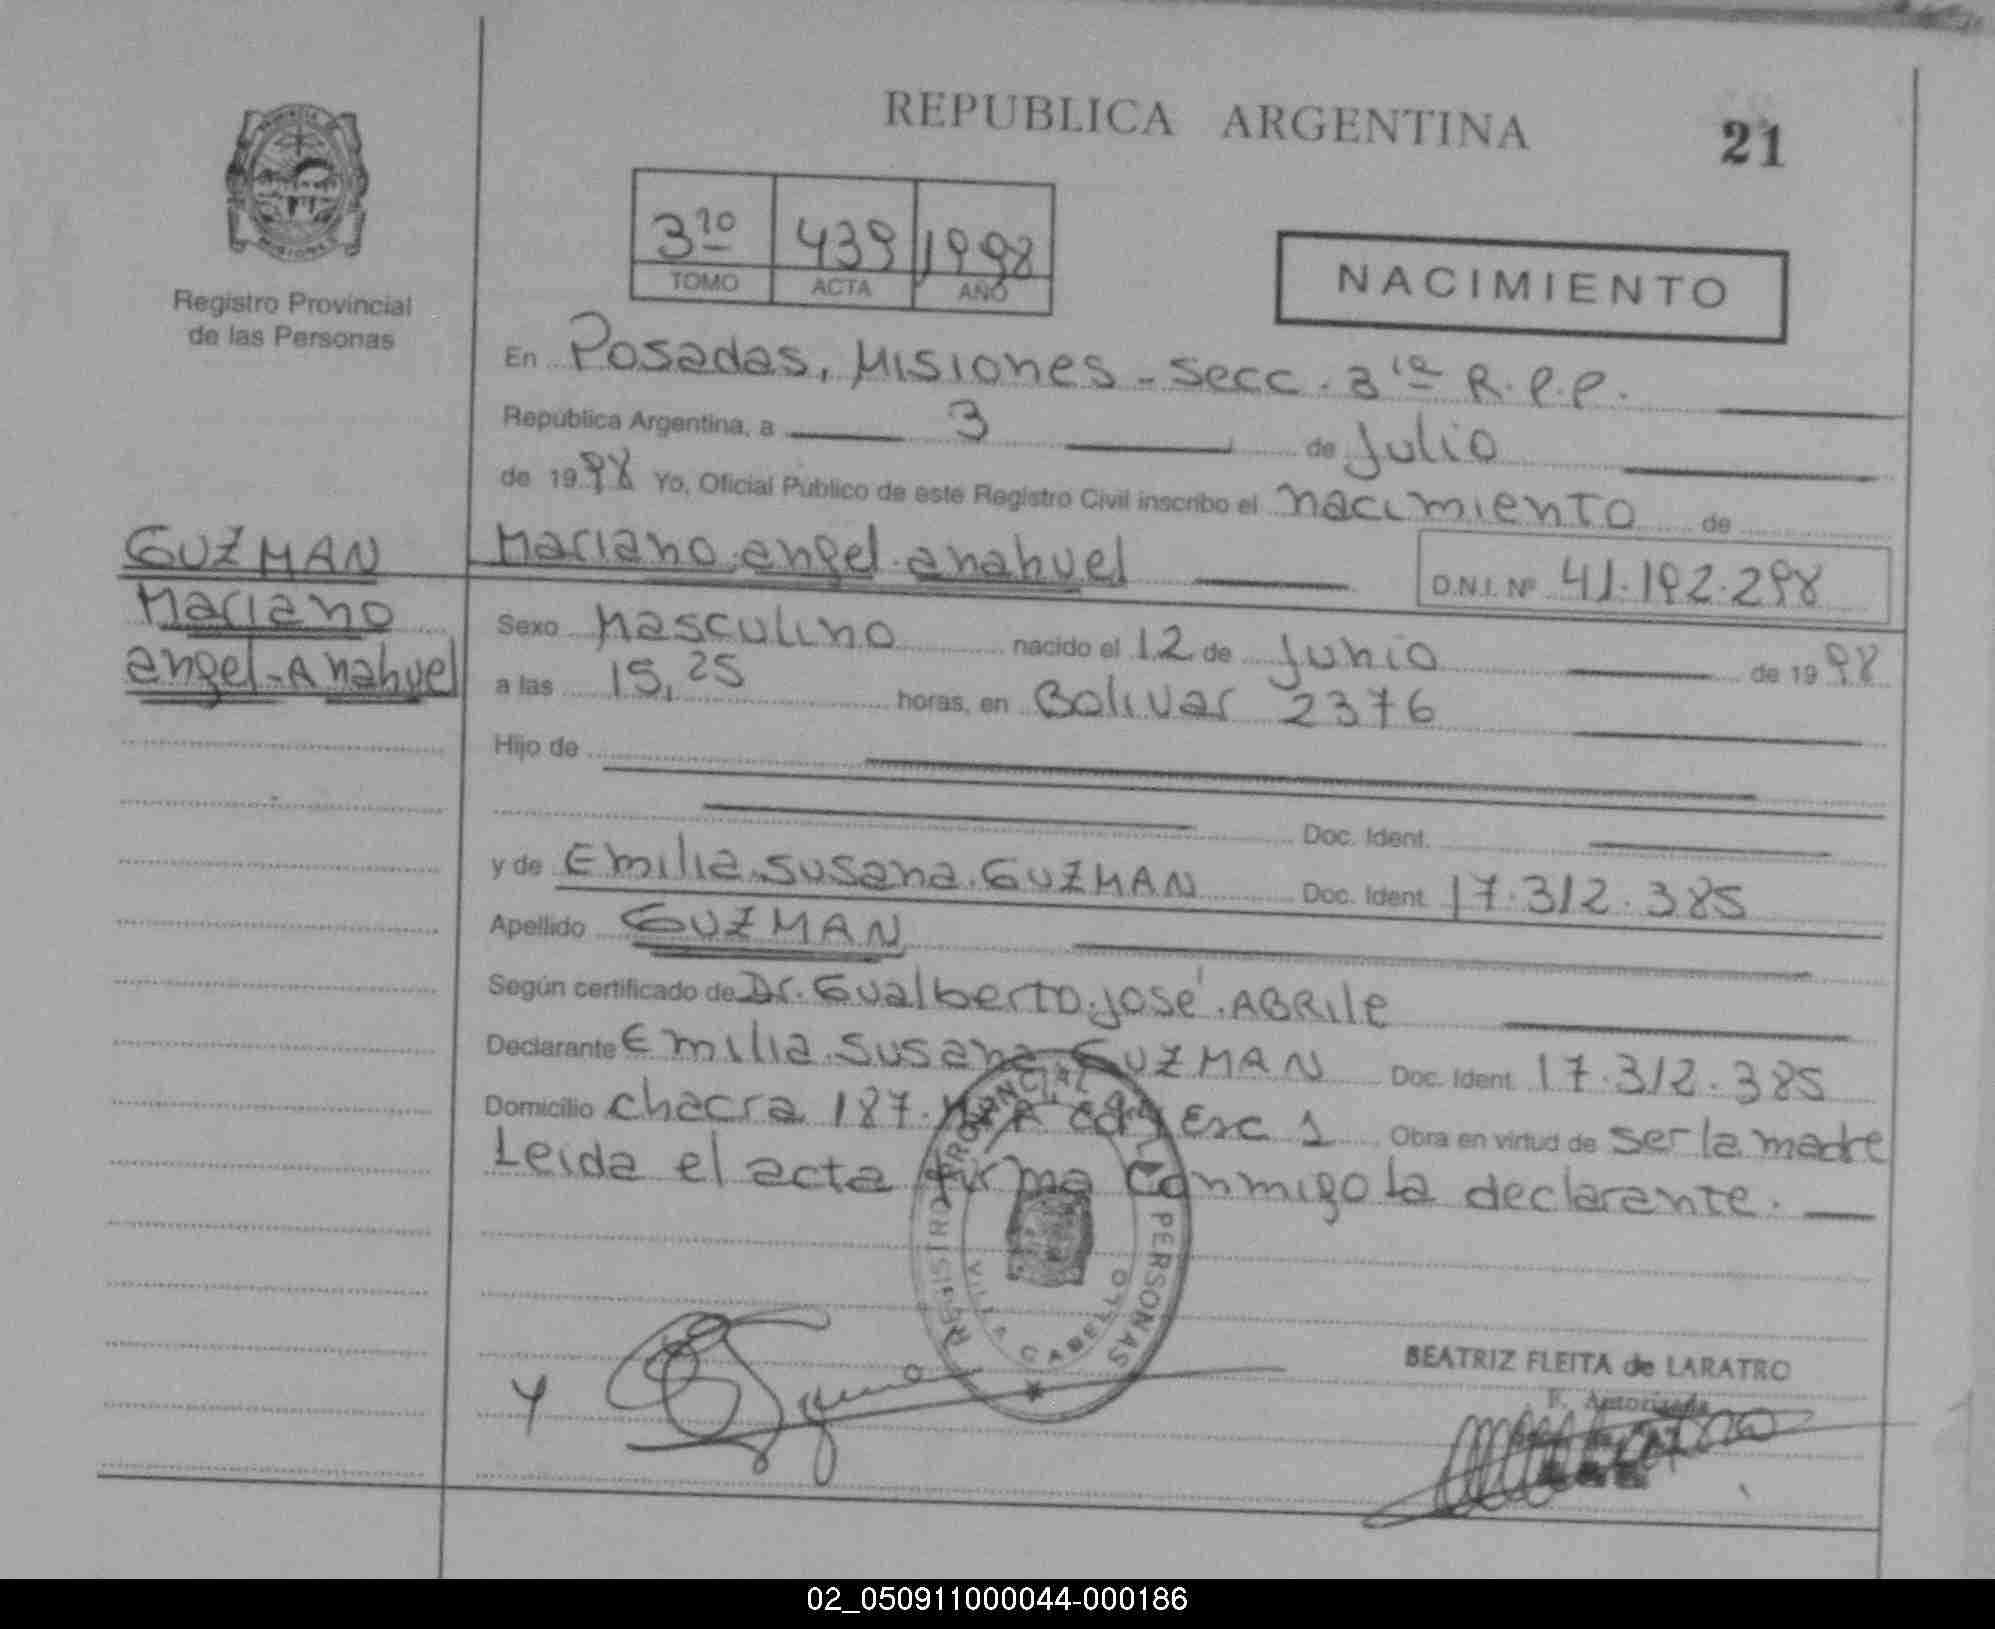 REPUBLICA ARGENTINA
21
Registro Provincial
de las Personas
3ro 439 1998
TOMO ACTA AÑO
NACIMIENTO
En Posadas, Misiones - Secc. 3ra R.P.P.
República Argentina, a 3 de Julio
de 1998 Yo, Oficial Público de este Registro Civil inscribo el nacimiento de
Mariano.angel.anahuel
D.N.I. Nº 41.192.298
GUZMAN
Mariano
angel-Anahuel
Sexo Masculino nacido el 12 de Junio de 1998
a las 15,25 horas, en Bolivar 2376
Hijo de
Doc. Ident.
y de Emilia.Susana.GUZMAN Doc. Ident. 17.312.385
Apellido GUZMAN
Según certificado de Dr. Gualberto.José.ABRile
Declarante Emilia.Susana GUZMAN Doc. Ident. 17.312.385
Domicilio chacra 187. Esc 1 Obra en virtud de ser la madre
Leida el acta firma conmigo la declarante.
REGISTRO PROVINCIAL PERSONAS
VILLA CABELLO
BEATRIZ FLEITA de LARATRO
F. Autorizada
02_050911000044-000186